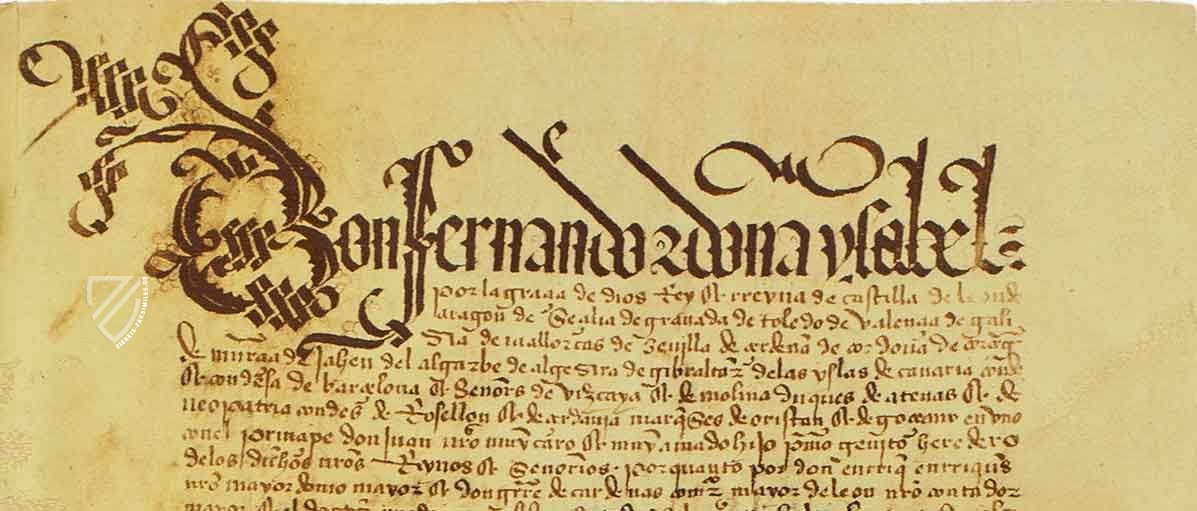 Don Fernando e doña ysabel
por la graçia de dios Rey et rreyna de castilla de leon de
aragon de Seçilia de granada de toledo de valençia de gali
zia de mallorcas de Sevilla de çerdeña de cordova de corçega
de murçia de Jahen del algarbe de algezira de gibraltar de las yslas de canaria conde
et condesa de barçelona et Señores de vizcaya et de molina duques de atenas et de
neopatria condes de Rosellon et de çerdania marqses de oristan et de goçiano en uno
con el prinçipe don juan nro muy caro et muy amado hijo primo genito heredero
de los dichos nros Reynos et Señorios. por quanto por don enrriq enrriques
nro mayordomo mayor et don gtrre de cardenas comr mayor de leon nro contador
mayor
ZIEREIS-FACSIMILES.DE